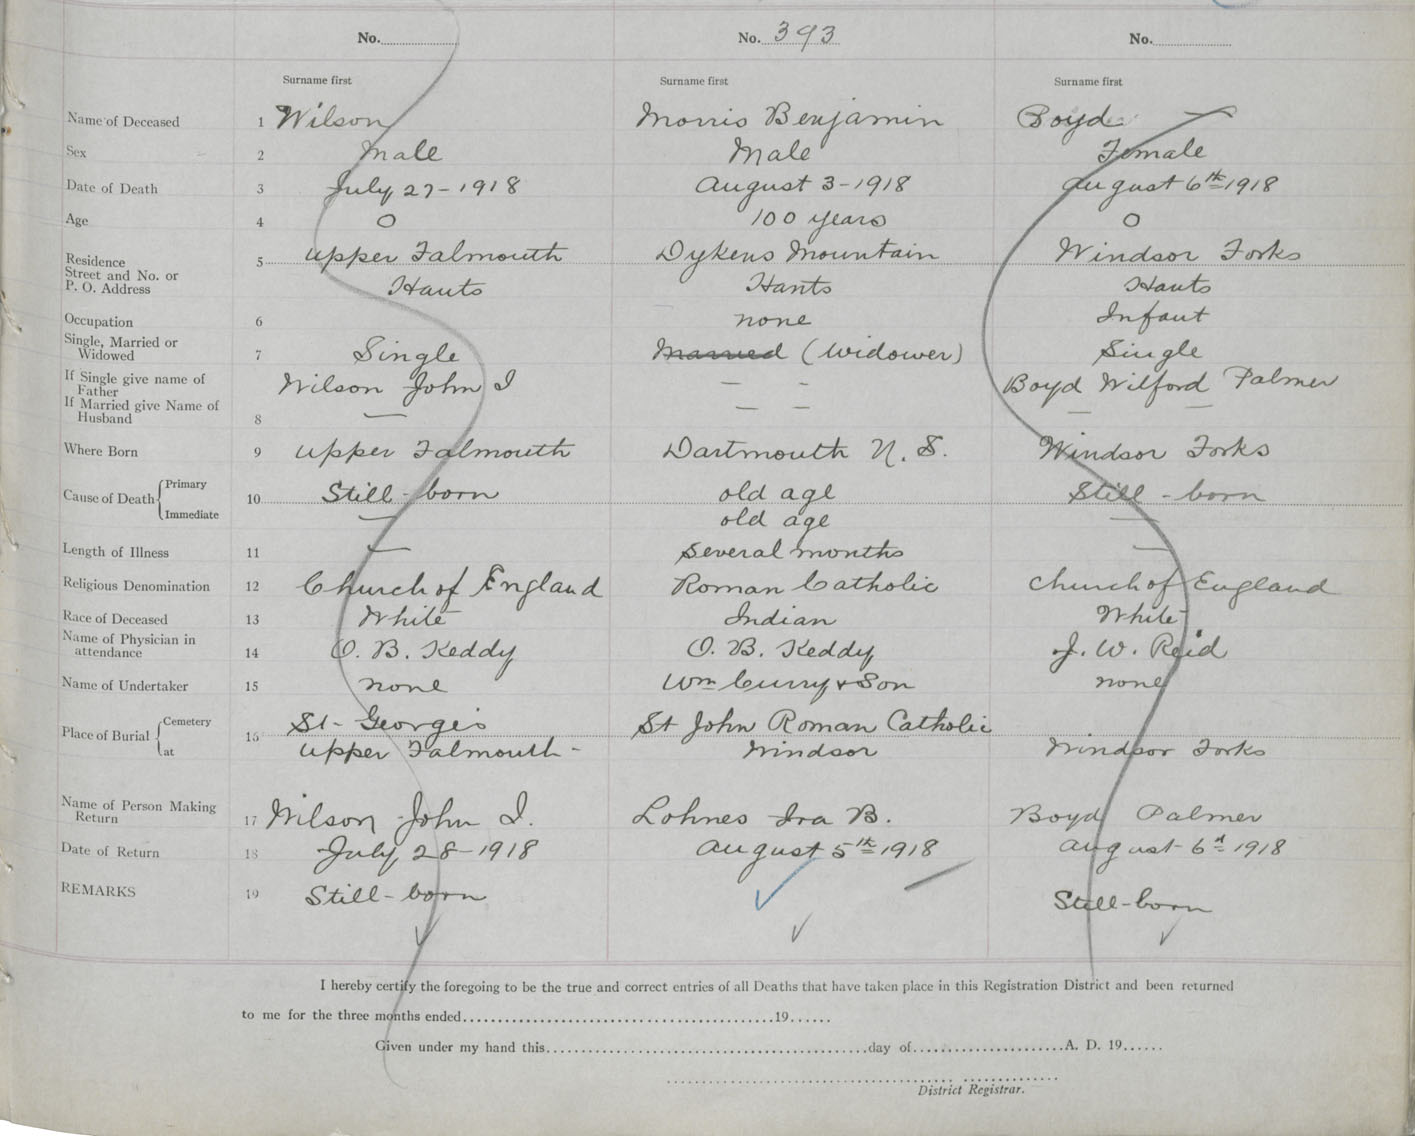 No. No. 393 No.
Surname first Surname first Surname first
Name of Deceased 1 Wilson Morris Benjamin Boyd
Sex 2 Male Male Female
Date of Death 3 July 27-1918 August 3-1918 August 6th 1918
Age 4 0 100 years 0
Residence 5 Upper Falmouth Dykens Mountain Windsor Forks
Street and No. or
P. O. Address Hants Hants Hants
Occupation 6 none Infant
Single, Married or
Widowed 7 Single Married (Widower) Single
If Single give name of
Father Wilson John I — — Boyd Wilford Palmer
If Married give Name of
Husband 8 — — — — —
Where Born 9 Upper Falmouth Dartmouth N. S. Windsor Forks
Cause of Death Primary 10 Still-born old age Still-born
Immediate — old age —
Length of Illness 11 — Several months —
Religious Denomination 12 Church of England Roman Catholic Church of England
Race of Deceased 13 White Indian White
Name of Physician in
attendance 14 O. B. Keddy O. B. Keddy J. W. Reid
Name of Undertaker 15 none Wm Curry & Son none
Place of Burial Cemetery 16 St-George's St John Roman Catholic
at Upper Falmouth- Windsor Windsor Forks
Name of Person Making
Return 17 Wilson John I. Lohnes Ira B. Boyd Palmer
Date of Return 18 July 28-1918 August 5th 1918 August 6th 1918
REMARKS 19 Still-born Still-born
I hereby certify the foregoing to be the true and correct entries of all Deaths that have taken place in this Registration District and been returned
to me for the three months ended 19
Given under my hand this day of A. D. 19
District Registrar.